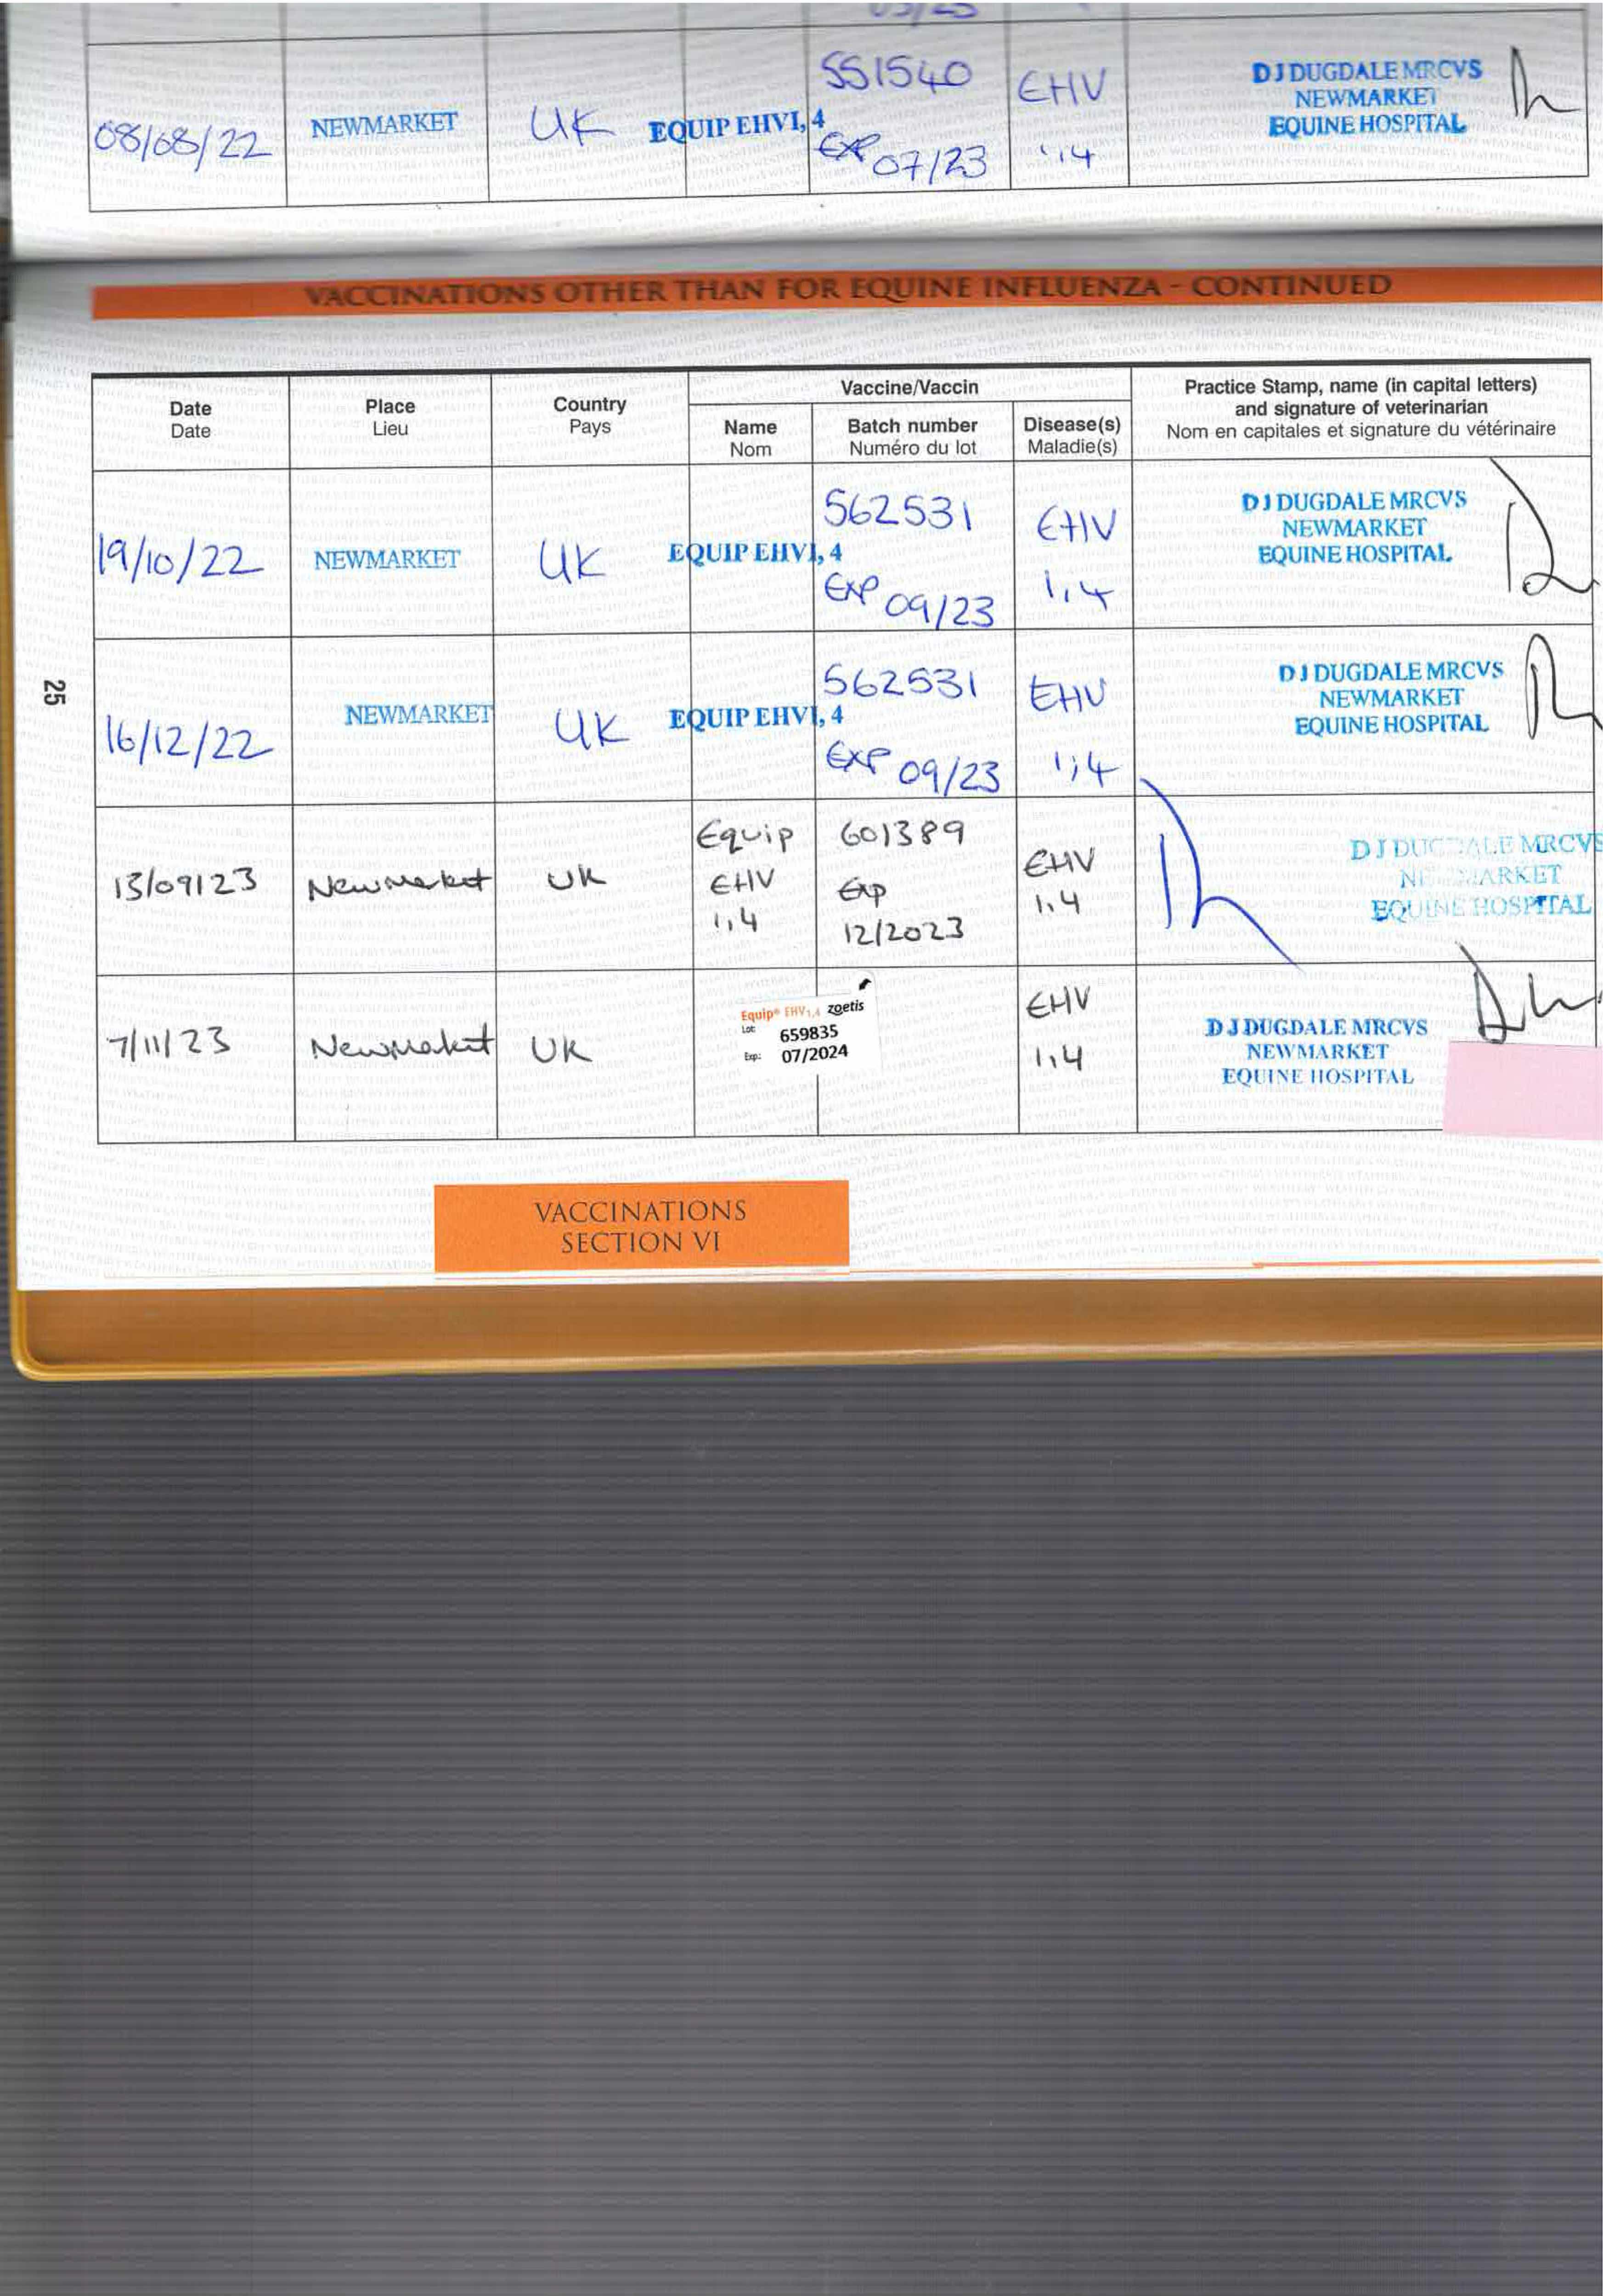 08/08/22 NEWMARKET UK EQUIP EHV1, 4 551540 EXP 07/23 EHV 1,4 DJ DUGDALE MRCVS
NEWMARKET
EQUINE HOSPITAL
VACCINATIONS OTHER THAN FOR EQUINE INFLUENZA - CONTINUED
Date
Date
Place
Lieu
Country
Pays
Vaccine/Vaccin
Name
Nom
Batch number
Numéro du lot
Disease(s)
Maladie(s)
Practice Stamp, name (in capital letters)
and signature of veterinarian
Nom en capitales et signature du vétérinaire
19/10/22
NEWMARKET
UK
EQUIP EHV1, 4
562531
EXP 09/23
EHV
1,4
DJ DUGDALE MRCVS
NEWMARKET
EQUINE HOSPITAL
25
16/12/22
NEWMARKET
UK
EQUIP EHV1, 4
562531
EXP 09/23
EHV
1,4
DJ DUGDALE MRCVS
NEWMARKET
EQUINE HOSPITAL
13/09/23
Newmarket
UK
Equip
EHV
1,4
601389
Exp
12/2023
EHV
1,4
DJ DUGDALE MRCVS
NEWMARKET
EQUINE HOSPITAL
7/11/23
Newmarket
UK
Equip® EHV1,4 zoetis
Lot: 659835
Exp: 07/2024
EHV
1,4
DJ DUGDALE MRCVS
NEWMARKET
EQUINE HOSPITAL
VACCINATIONS
SECTION VI